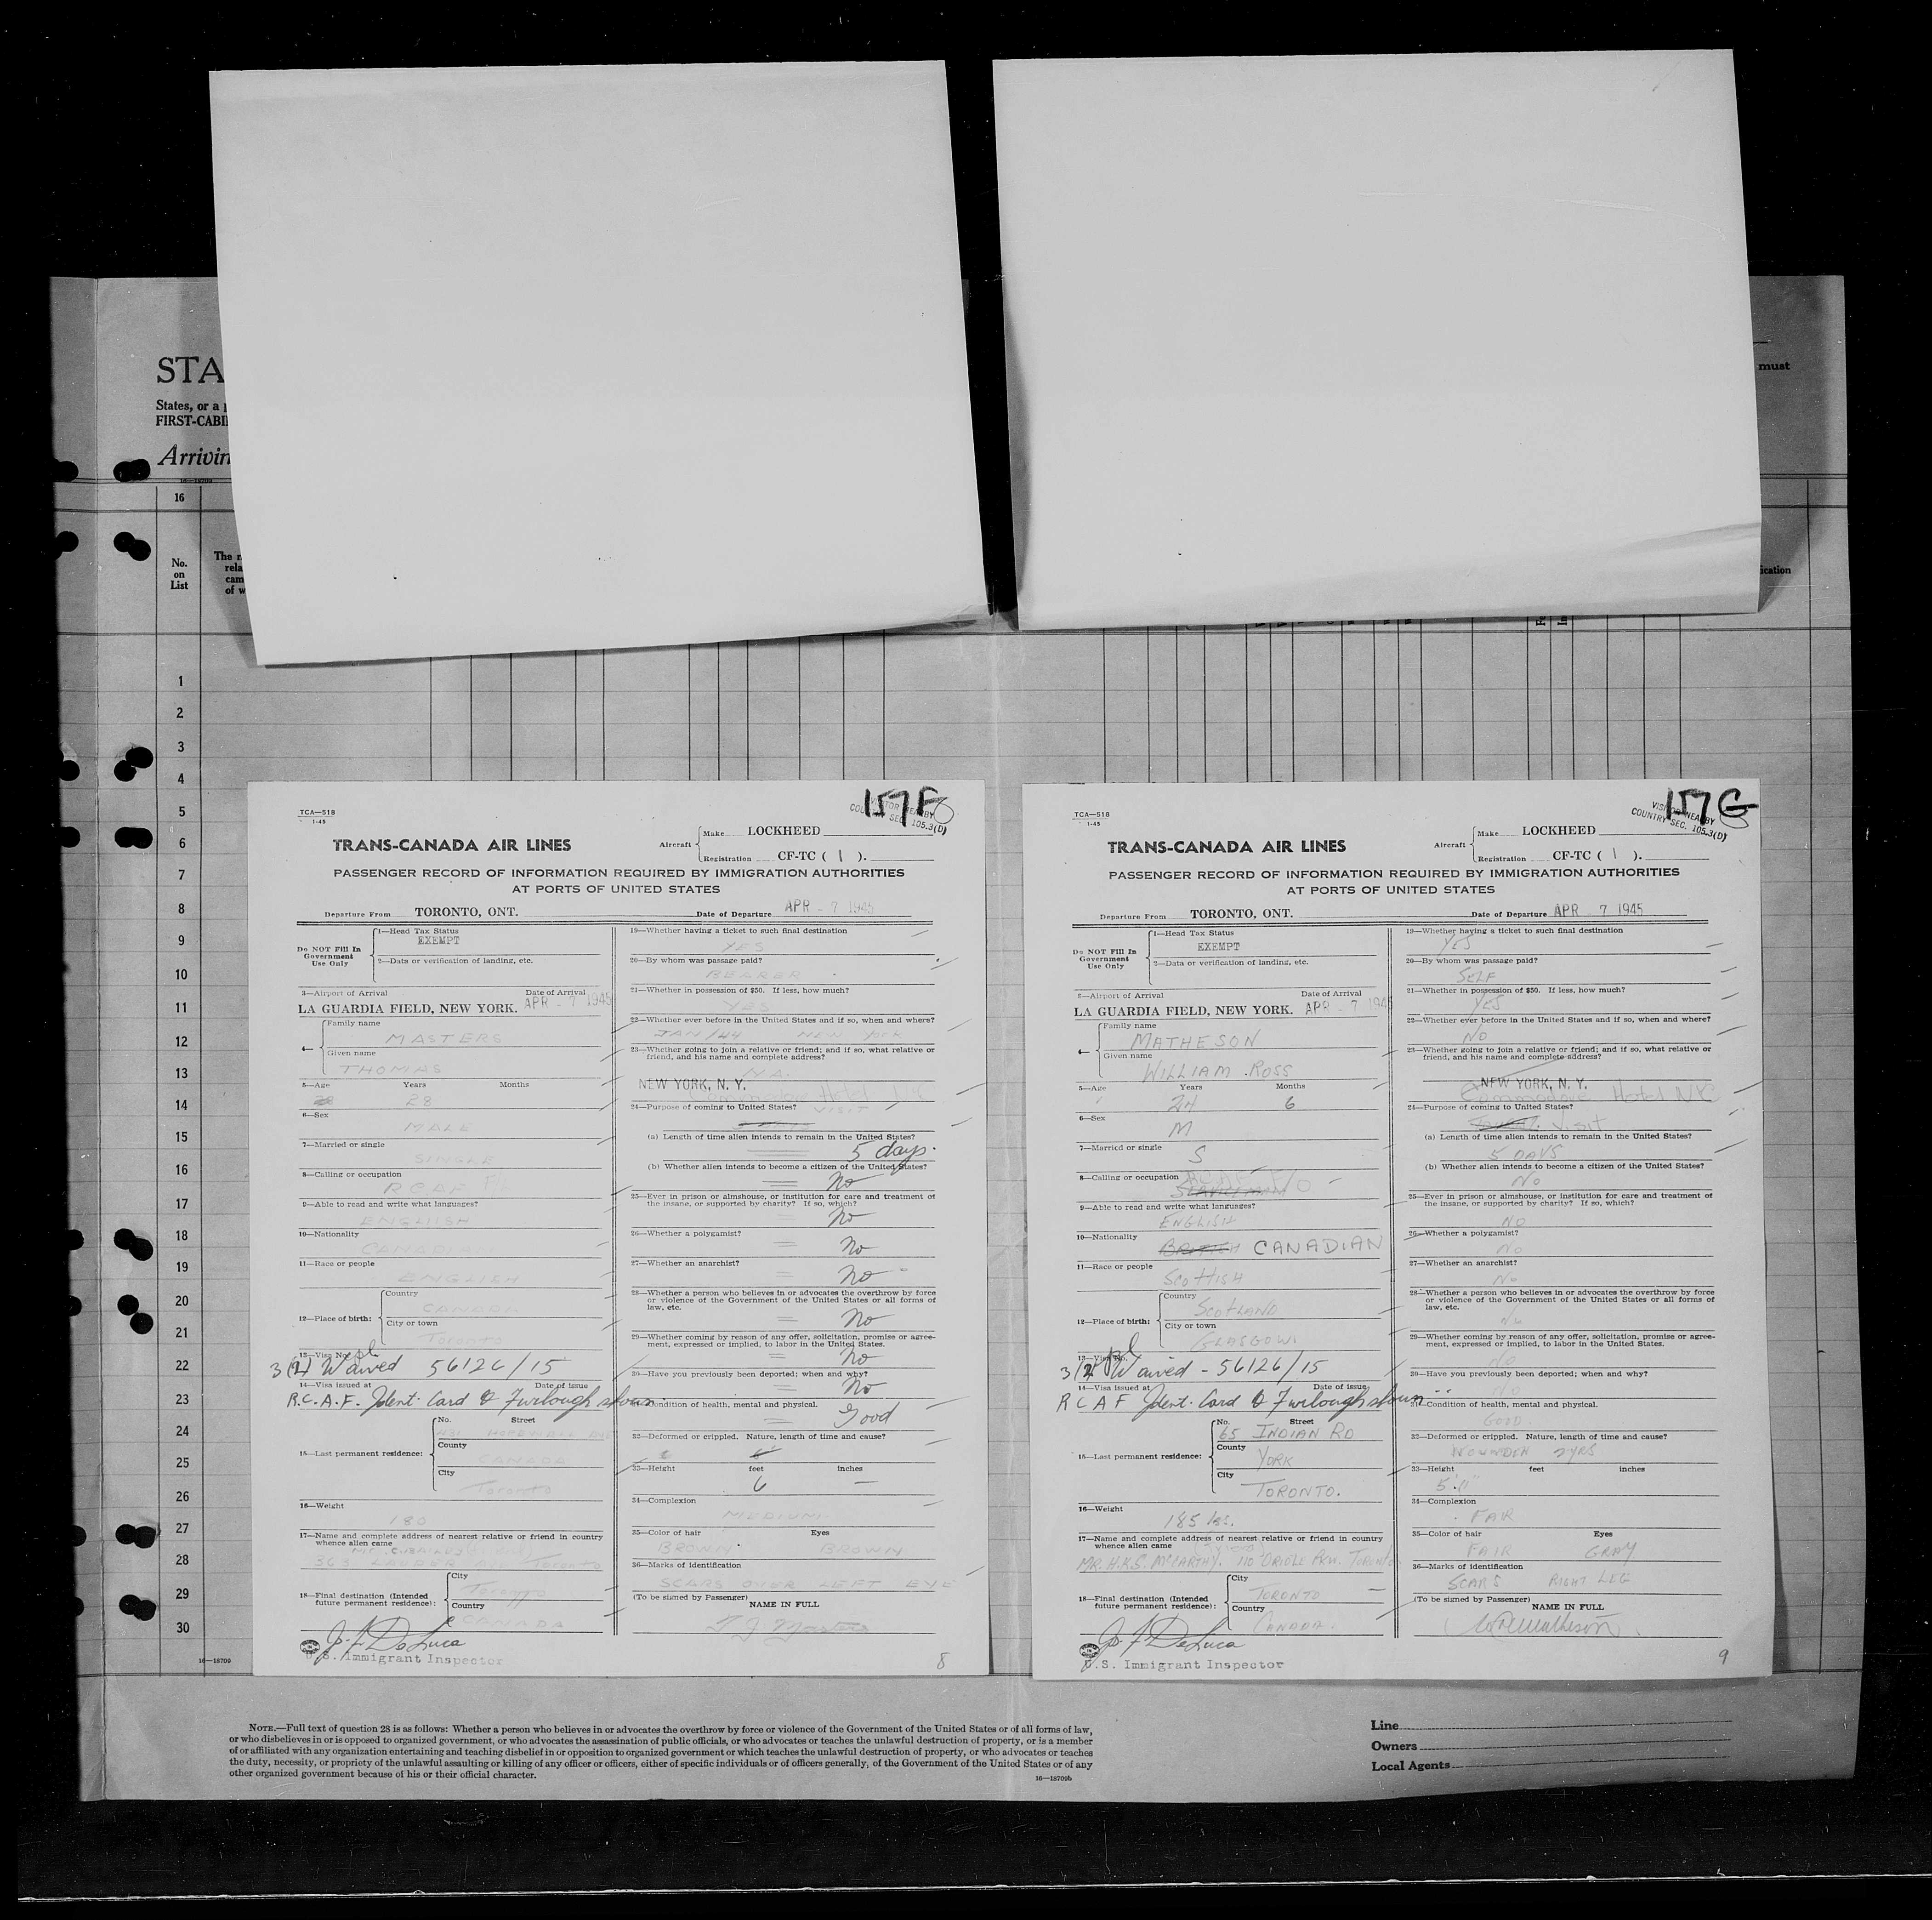 STA
States, or a
FIRST-CABI
Arrivin
must
16—18709
16
No.
on
List
The
rela
cam
of w
ication
1
2
3
4
5
6
7
8
9
10
11
12
13
14
15
16
17
18
19
20
21
22
23
24
25
26
27
28
29
30
16—18709
TCA—518
1-45
157F
SEC. 105.3(D)
TRANS-CANADA AIR LINES
Aircraft
Make LOCKHEED
Registration CF-TC ( 1 ).
PASSENGER RECORD OF INFORMATION REQUIRED BY IMMIGRATION AUTHORITIES
AT PORTS OF UNITED STATES
Departure From TORONTO, ONT. Date of Departure APR - 7 1945
Do NOT Fill In
Government
Use Only
1—Head Tax Status
EXEMPT
2—Data or verification of landing, etc.
3—Airport of Arrival Date of Arrival
LA GUARDIA FIELD, NEW YORK. APR - 7 1945
4— Family name
MASTERS
Given name
THOMAS
5—Age Years Months
28
6—Sex
MALE
7—Married or single
SINGLE
8—Calling or occupation
RCAF
9—Able to read and write what languages?
ENGLISH
10—Nationality
CANADIAN
11—Race or people
ENGLISH
12—Place of birth:
Country
CANADA
City or town
Toronto
13—Visa No.
3(2) Waived 56126/15
14—Visa issued at Date of issue
R.C.A.F. Ident. Card & Furlough shown
15—Last permanent residence:
No. Street
County
CANADA
City
Toronto
16—Weight
180
17—Name and complete address of nearest relative or friend in country
whence alien came
363 LAUDER AVE Toronto
18—Final destination (Intended
future permanent residence):
City
Toronto
Country
CANADA
J. F. DeLuca
U.S. Immigrant Inspector
19—Whether having a ticket to such final destination
YES
20—By whom was passage paid?
BEARER
21—Whether in possession of $50. If less, how much?
YES
22—Whether ever before in the United States and if so, when and where?
JAN/44 NEW YORK
23—Whether going to join a relative or friend; and if so, what relative or
friend, and his name and complete address?
N.A.
NEW YORK, N. Y.
Commodore Hotel
24—Purpose of coming to United States?
VISIT
(a) Length of time alien intends to remain in the United States?
5 days.
(b) Whether alien intends to become a citizen of the United States?
No
25—Ever in prison or almshouse, or institution for care and treatment of
the insane, or supported by charity? If so, which?
No
26—Whether a polygamist?
No
27—Whether an anarchist?
No
28—Whether a person who believes in or advocates the overthrow by force
or violence of the Government of the United States or all forms of
law, etc.
No
29—Whether coming by reason of any offer, solicitation, promise or agree-
ment, expressed or implied, to labor in the United States.
No
30—Have you previously been deported; when and why?
No
31—Condition of health, mental and physical.
Good
32—Deformed or crippled. Nature, length of time and cause?
33—Height feet inches
6 —
34—Complexion
MEDIUM
35—Color of hair Eyes
BROWN BROWN
36—Marks of identification
SCARS OVER LEFT EYE
(To be signed by Passenger)
NAME IN FULL
T J Masters
8
TCA—518
1-45
157G
VISITOR NEARBY
COUNTRY SEC. 105.3(D)
TRANS-CANADA AIR LINES
Aircraft
Make LOCKHEED
Registration CF-TC ( 1 ).
PASSENGER RECORD OF INFORMATION REQUIRED BY IMMIGRATION AUTHORITIES
AT PORTS OF UNITED STATES
Departure From TORONTO, ONT. Date of Departure APR 7 1945
Do NOT Fill In
Government
Use Only
1—Head Tax Status
EXEMPT
2—Data or verification of landing, etc.
3—Airport of Arrival Date of Arrival
LA GUARDIA FIELD, NEW YORK. APR - 7 1945
4— Family name
MATHESON
Given name
WILLIAM ROSS
5—Age Years Months
24 6
6—Sex
M
7—Married or single
S
8—Calling or occupation
9—Able to read and write what languages?
ENGLISH
10—Nationality
BRITISH CANADIAN
11—Race or people
SCOTTISH
12—Place of birth:
Country
SCOTLAND
City or town
GLASGOW
13—Visa No.
3(2) Waived - 56126/15
14—Visa issued at Date of issue
R C A F Ident. Card & Furlough shown
15—Last permanent residence:
No. Street
65 INDIAN RD
County
YORK
City
TORONTO.
16—Weight
185 lbs.
17—Name and complete address of nearest relative or friend in country
whence alien came
MR. H.K.S. MCCARTHY. 110 ORIOLE PKW. TORONTO
18—Final destination (Intended
future permanent residence):
City
TORONTO
Country
CANADA.
J. F. DeLuca
U.S. Immigrant Inspector
19—Whether having a ticket to such final destination
YES
20—By whom was passage paid?
SELF
21—Whether in possession of $50. If less, how much?
YES
22—Whether ever before in the United States and if so, when and where?
NO
23—Whether going to join a relative or friend; and if so, what relative or
friend, and his name and complete address?
NEW YORK, N. Y.
Commodore Hotel NYC
24—Purpose of coming to United States?
Visit
(a) Length of time alien intends to remain in the United States?
5 DAYS
(b) Whether alien intends to become a citizen of the United States?
NO
25—Ever in prison or almshouse, or institution for care and treatment of
the insane, or supported by charity? If so, which?
NO
26—Whether a polygamist?
NO
27—Whether an anarchist?
No
28—Whether a person who believes in or advocates the overthrow by force
or violence of the Government of the United States or all forms of
law, etc.
No
29—Whether coming by reason of any offer, solicitation, promise or agree-
ment, expressed or implied, to labor in the United States.
NO
30—Have you previously been deported; when and why?
NO
31—Condition of health, mental and physical.
GOOD.
32—Deformed or crippled. Nature, length of time and cause?
WOUNDED 2 YRS
33—Height feet inches
5'.11"
34—Complexion
FAIR
35—Color of hair Eyes
FAIR GRAY
36—Marks of identification
SCARS RIGHT LEG
(To be signed by Passenger)
NAME IN FULL
W R Matheson
9
NOTE.—Full text of question 28 is as follows: Whether a person who believes in or advocates the overthrow by force or violence of the Government of the United States or of all forms of law,
or who disbelieves in or is opposed to organized government, or who advocates the assassination of public officials, or who advocates or teaches the unlawful destruction of property, or is a member
of or affiliated with any organization entertaining and teaching disbelief in or opposition to organized government or which teaches the unlawful destruction of property, or who advocates or teaches
the duty, necessity, or propriety of the unlawful assaulting or killing of any officer or officers, either of specific individuals or of officers generally, of the Government of the United States or of any
other organized government because of his or their official character.
16—18709b
Line
Owners
Local Agents